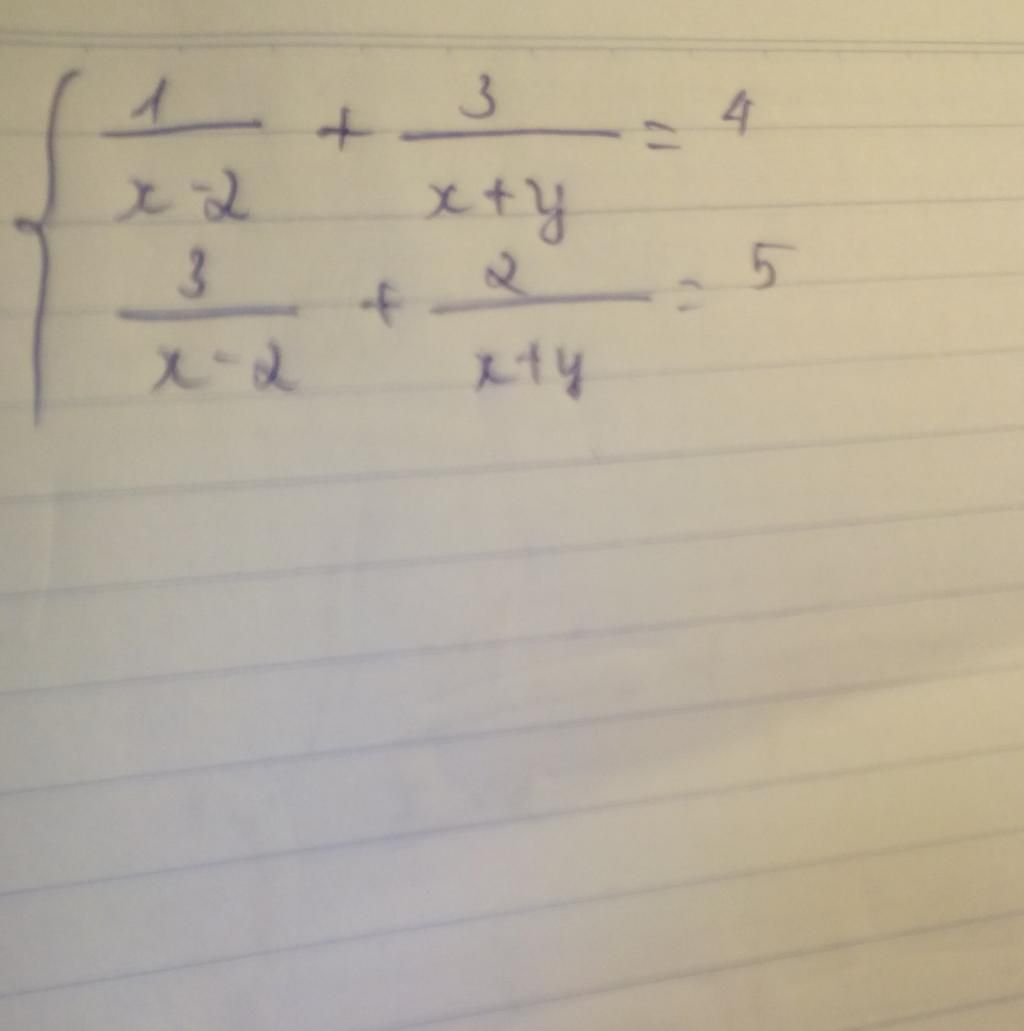 1/(x-2) + 3/(x+y) = 4
3/(x-2) + 2/(x+y) = 5